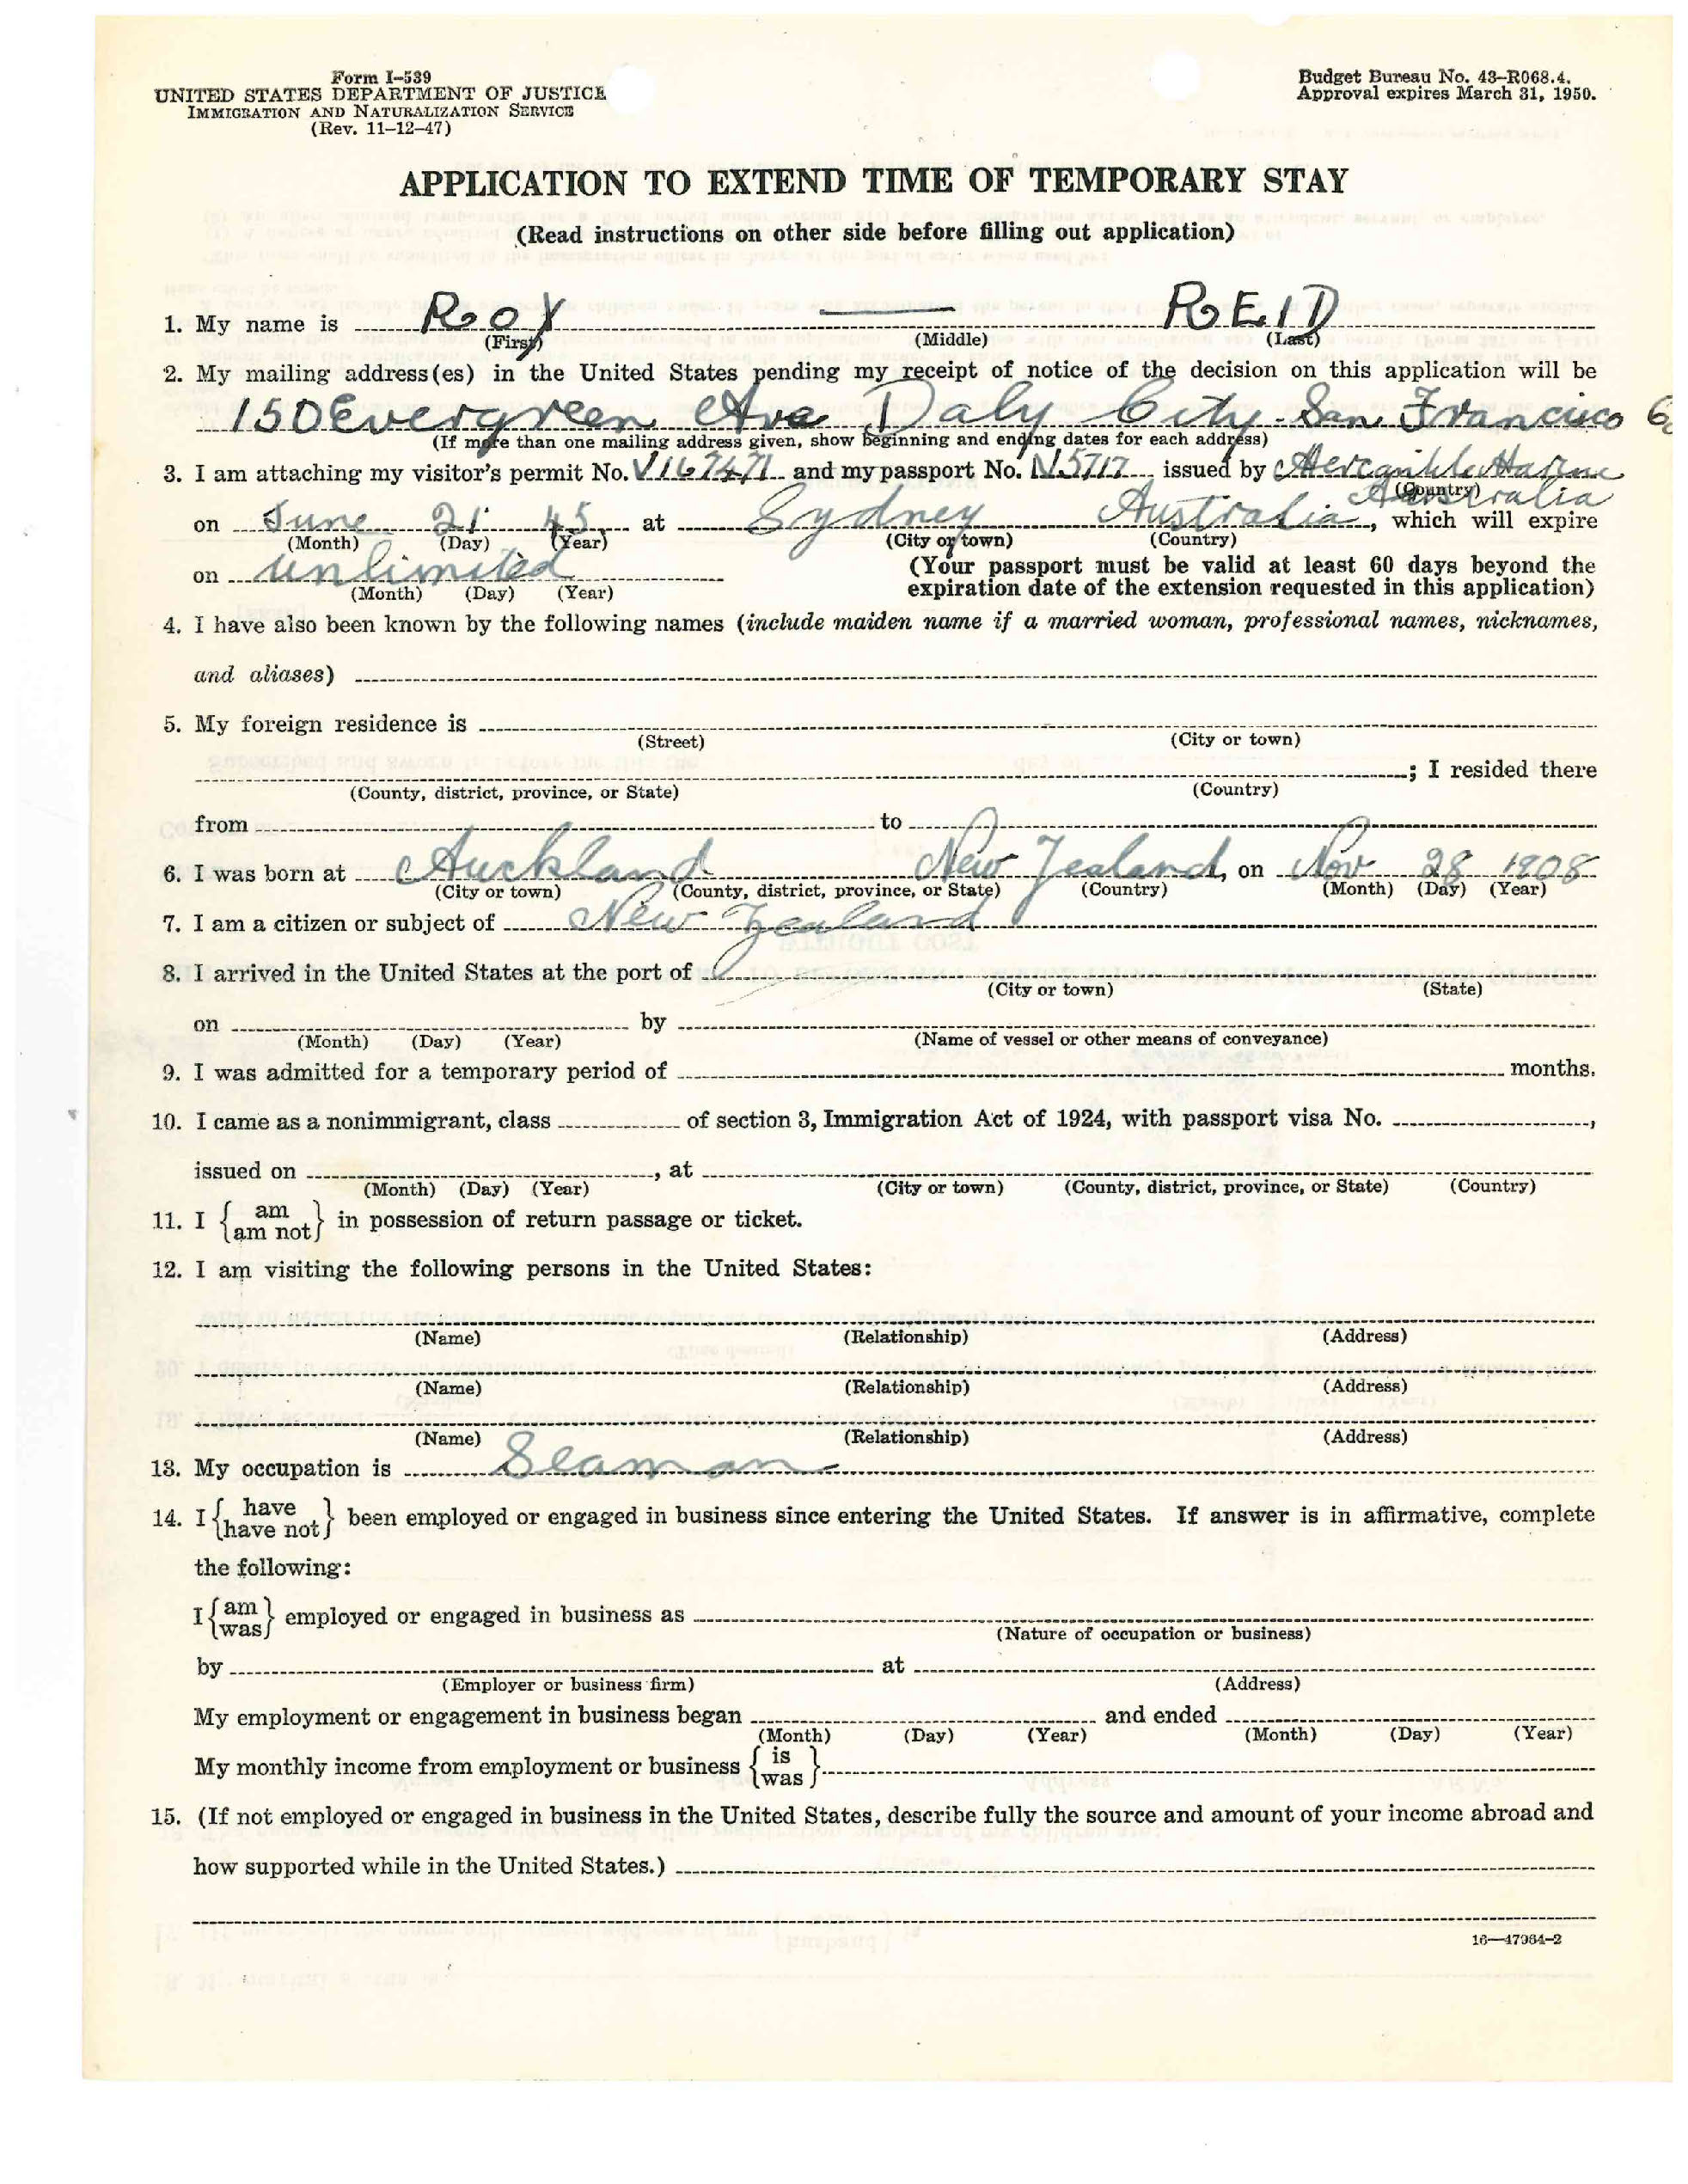 Form I-539
UNITED STATES DEPARTMENT OF JUSTICE
IMMIGRATION AND NATURALIZATION SERVICE
(Rev. 11-12-47)
Budget Bureau No. 43-R068.4.
Approval expires March 31, 1950.
APPLICATION TO EXTEND TIME OF TEMPORARY STAY
(Read instructions on other side before filling out application)
1. My name is ROY — REID
(First) (Middle) (Last)
2. My mailing address(es) in the United States pending my receipt of notice of the decision on this application will be
150 Evergreen Ave Daly City - San Francisco
(If more than one mailing address given, show beginning and ending dates for each address)
3. I am attaching my visitor's permit No. V167471 and my passport No. N5717 issued by Mercantile Marine
(Country) Australia
on June 21 45 at Sydney Australia, which will expire
(Month) (Day) (Year) (City or town) (Country)
on unlimited (Your passport must be valid at least 60 days beyond the
(Month) (Day) (Year) expiration date of the extension requested in this application)
4. I have also been known by the following names (include maiden name if a married woman, professional names, nicknames,
and aliases)
5. My foreign residence is
(Street) (City or town)
; I resided there
(County, district, province, or State) (Country)
from to
6. I was born at Auckland New Zealand, on Nov 28 1908
(City or town) (County, district, province, or State) (Country) (Month) (Day) (Year)
7. I am a citizen or subject of New Zealand
8. I arrived in the United States at the port of
(City or town) (State)
on by
(Month) (Day) (Year) (Name of vessel or other means of conveyance)
9. I was admitted for a temporary period of months.
10. I came as a nonimmigrant, class of section 3, Immigration Act of 1924, with passport visa No. ,
issued on , at
(Month) (Day) (Year) (City or town) (County, district, province, or State) (Country)
11. I {am / am not} in possession of return passage or ticket.
12. I am visiting the following persons in the United States:
(Name) (Relationship) (Address)
(Name) (Relationship) (Address)
(Name) (Relationship) (Address)
13. My occupation is Seaman
14. I {have / have not} been employed or engaged in business since entering the United States. If answer is in affirmative, complete
the following:
I {am / was} employed or engaged in business as
(Nature of occupation or business)
by at
(Employer or business firm) (Address)
My employment or engagement in business began and ended
(Month) (Day) (Year) (Month) (Day) (Year)
My monthly income from employment or business {is / was}
15. (If not employed or engaged in business in the United States, describe fully the source and amount of your income abroad and
how supported while in the United States.)
16—47984-2